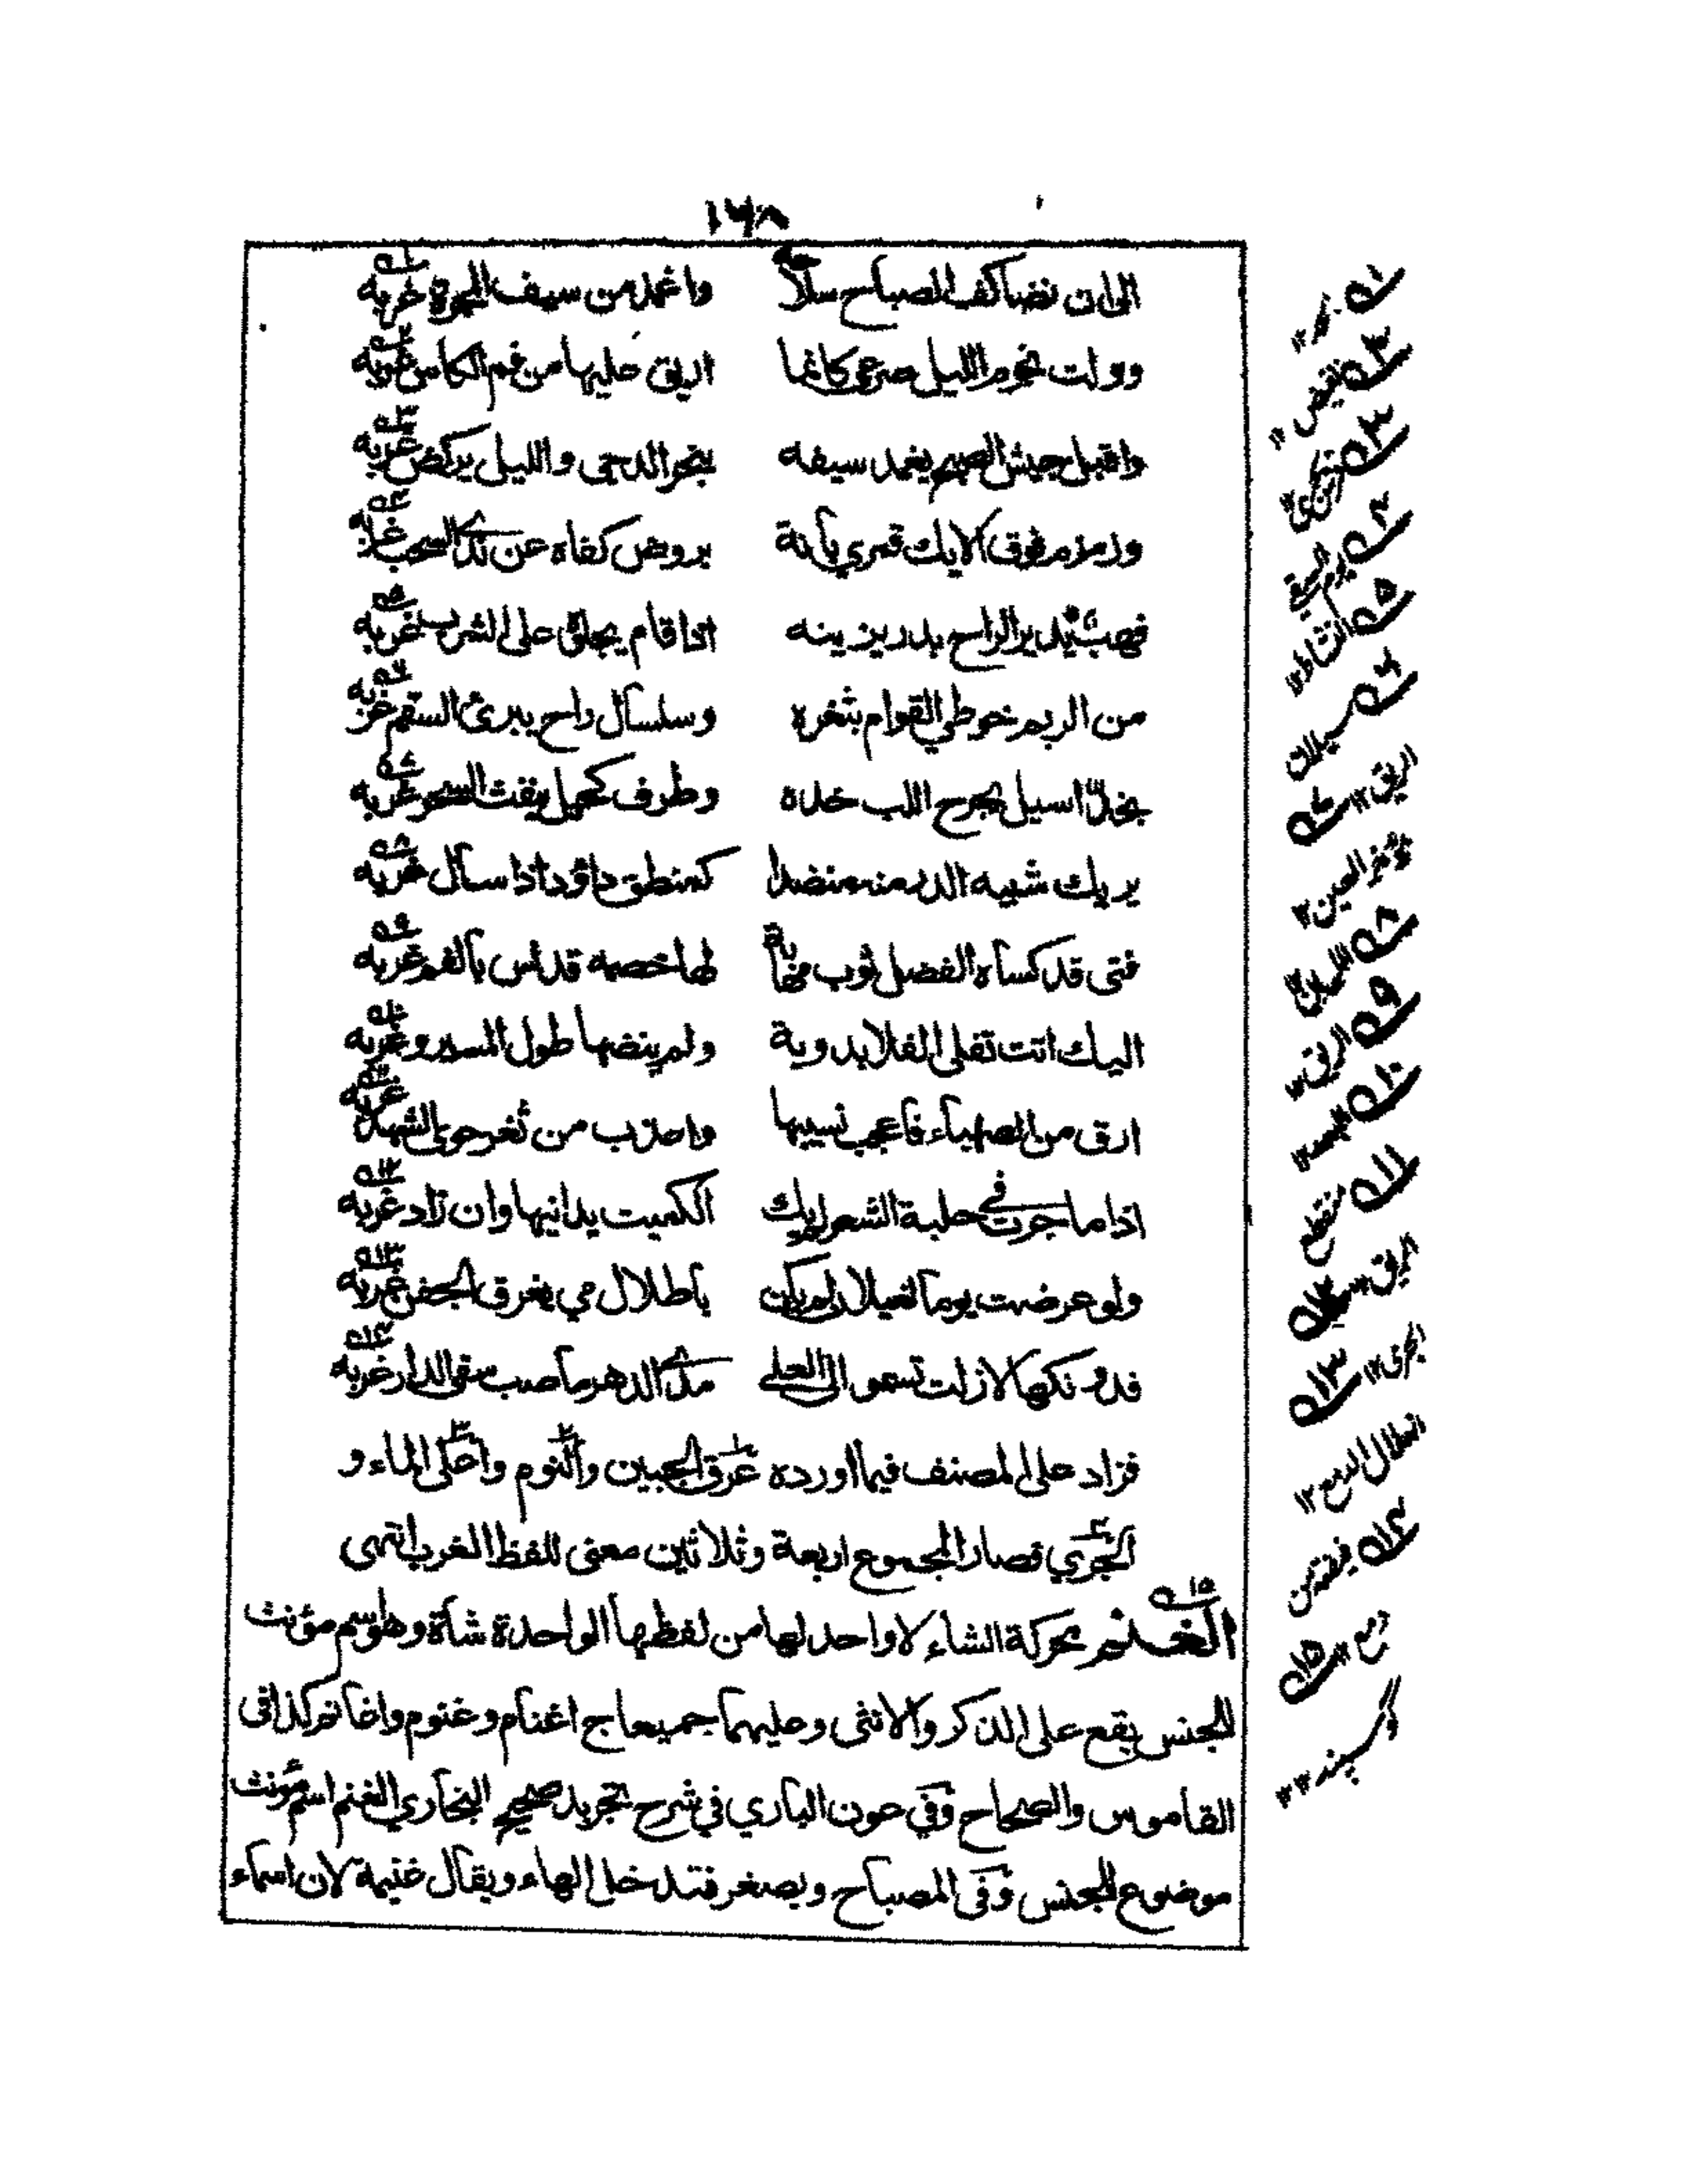 ١٦٨
الى ان نضا كف الصباح سلاحه واغمد من سيف المجرة غربه
وولت نجوم الليل صرعى كانما اريق عليها من فم الكاس غربه
واقبل جيش الصبح يغمد سيفه بنحر الدجى والليل يركض غربه
وزمزم فوق الايك قمري بانة بروض كفاه عن ندى السحب غربه
فهب يدير الراح بدر يزينه اذا قام يجلو على الشرب غربه
من الريم خوطي القوام بثغره وسلسال راح يبرئ السقم غربه
بخد اسيل يجرح اللب خده وطرف كحيل ينفث السحر غربه
يريك شبيه الدر منه منضدا كمنطق داؤد اذا سال غربه
فتى قد كساه الفضل ثوب مهابة لها خصمه قد لس بالفم غربه
اليك اتت تفلي الفلا بدوية ولم ينضها طول المسير وغربه
ارق من الصهباء فاعجب نسيبها واعذب من ثغر حوى الشهد غربه
اذا ما جرت في حلبة الشعر لم يك الكميت يدانيها وان زاد غربه
ولو عرضت يوما لغيلان لم يكن باطلال مي يغرق الجفن غربه
فدونكها لا زلت تسمو الى العلى مدى الدهر ما صب سقى الدار غربه
فزاد على المصنف فيما اورده عرق الجبين والنوم واعلى الماء و
الجري فصار المجموع اربعة وثلاثين معنى للفظ الغرب انتهى
الغنم محركة الشاء لا واحد لها من لفظها الواحدة شاة وهو اسم مؤنث
للجنس يقع على الذكر والانثى وعليهما جميعا ج اغنام وغنوم واغانم كذا في
القاموس والصحاح وفي عون الباري في شرح تجريد صحيح البخاري الغنم اسم مؤنث
موضوع للجنس وفي المصباح ويصغر فتدخل الهاء ويقال غنيمة لان اسماء
١
٢ فيض ١٢
٣
٤
٥ النشاط ١٢
٦ سيلان
الريق ١٢ ٧
مؤخر العين ١٢
٨ اللسان ١٢
٩ الريق ١٢
١٠
١١ منقطع
الريق ١٢
الجرى ١٢ ١٣
انهلال الدمع ١٢
١٤
دمع ١٢ ١٥
گوسپند ١٢